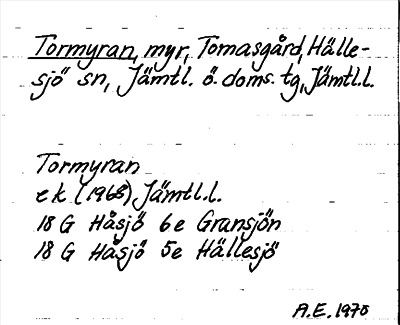 Tormyran, myr, Tomasgård, Hälle-
sjö sn, Jämtl. ö. doms. tg, Jämtl.l.
Tormyran
ek (1968) Jämtl.l.
18 G Håsjö 6e Gransjön
18 G Håsjö 5e Hällesjö
A.E. 1970